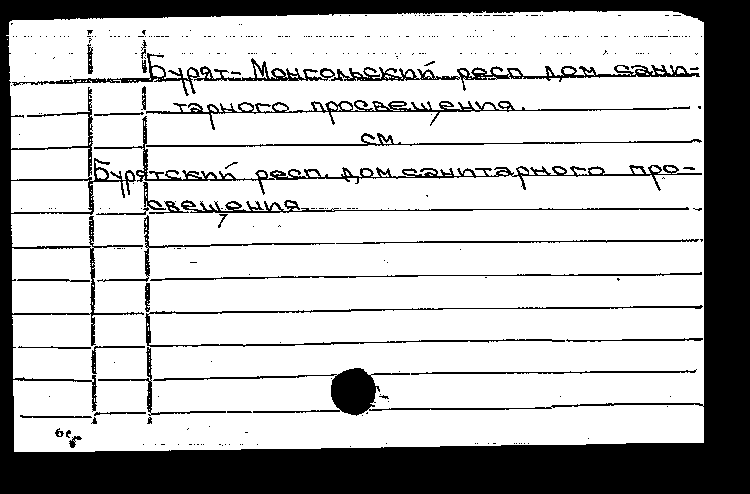 Бурят-Монгольский респ дом сани-
тарного просвещения.
см.
Бурятский респ. дом санитарного про-
свещения